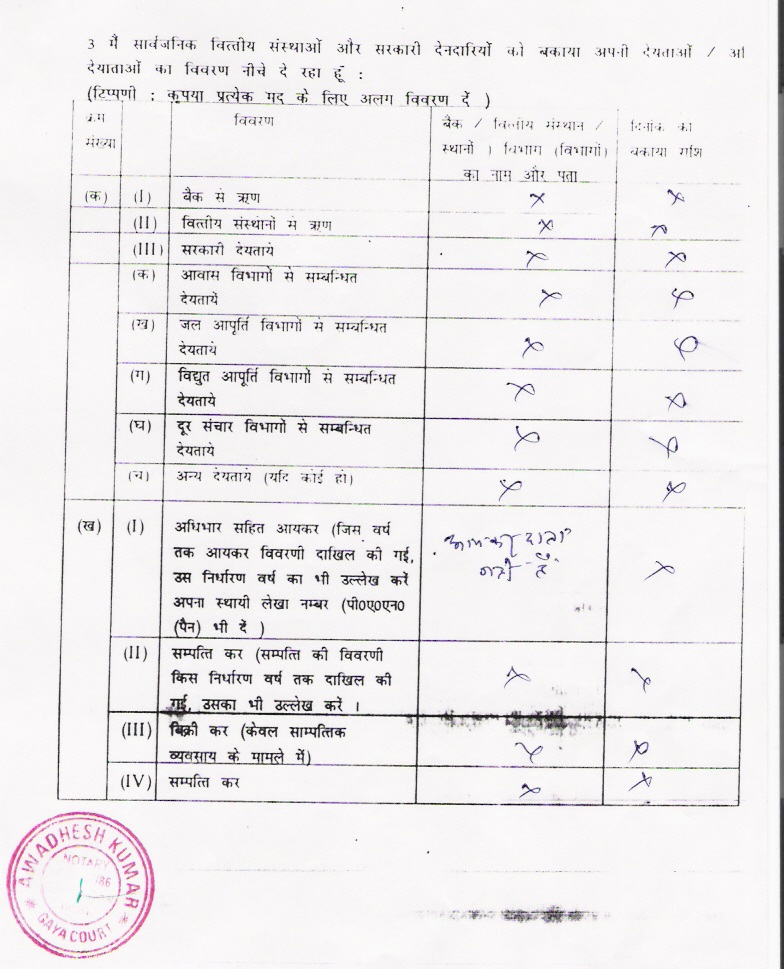 3 मैं सार्वजनिक वित्तीय संस्थाओं और सरकारी देनदारियों को बकाया अपनी देयताओं / अ
देयाताओं का विवरण नीचे दे रहा हूँ :
(टिप्पणी : कृपया प्रत्येक मद के लिए अलग विवरण दें )
क्रम
संख्या
विवरण
बैक / वित्तीय संस्थान /
स्थानों ) विभाग (विभागों)
का नाम और पता
दिनांक को
बकाया राशि
(क) (I) बैक से ऋण × ×
(II) वित्तीय संस्थानों से ऋण × ×
(III) सरकारी देयताये × ×
(क) आवास विभागों से सम्बन्धित
देयतायें × ×
(ख) जल आपूर्ति विभागों से सम्बन्धित
देयताये × ×
(ग) विद्युत आपूर्ति विभागों से सम्बन्धित
देयताये × ×
(घ) दूर संचार विभागों से सम्बन्धित
देयताये × ×
(च) अन्य देयताये (यदि कोई हो) × ×
(ख) (I) अधिभार सहित आयकर (जिस वर्ष
तक आयकर विवरणी दाखिल की गई,
उस निर्धारण वर्ष का भी उल्लेख करें
अपना स्थायी लेखा नम्बर (पी0ए0एन0
(पैन) भी दें )
आयकर दाता
नहीं हैं ×
(II) सम्पत्ति कर (सम्पत्ति की विवरणी
किस निर्धारण वर्ष तक दाखिल की
गई, उसका भी उल्लेख करें । × ×
(III) बिक्री कर (केवल साम्पत्तिक
व्यवसाय के मामले में) × ×
(IV) सम्पत्ति कर × ×
AWADHESH KUMAR
NOTARY
GAYA COURT